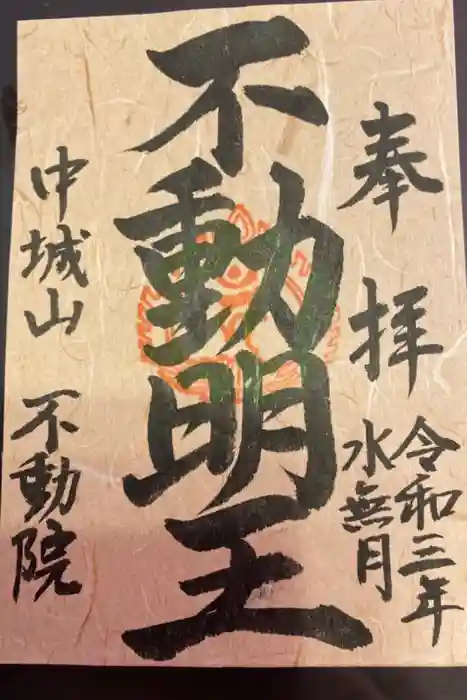 奉拝
令和三年
水無月
不動明王
中城山
不動院